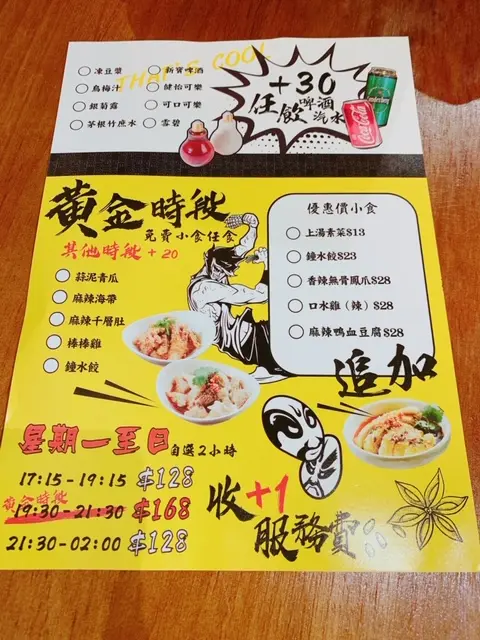 THAT'S COOL
凍豆漿
烏梅汁
銀菊露
茅根竹蔗水
新寶啤酒
健怡可樂
可口可樂
雪碧
+30
任飲啤酒
汽水
Coca-Cola
黃金時段
免費小食任食
其他時段 + 20
蒜泥青瓜
麻辣海帶
麻辣千層肚
棒棒雞
鐘水餃
優惠價小食
上湯素菜$13
鐘水餃$23
香辣無骨鳳爪$28
口水雞(辣)$28
麻辣鴨血豆腐$28
追加
星期一至日 自選2小時
17:15 - 19:15 $128
黃金時段
19:30 - 21:30 $168
21:30 - 02:00 $128
收+1
服務費